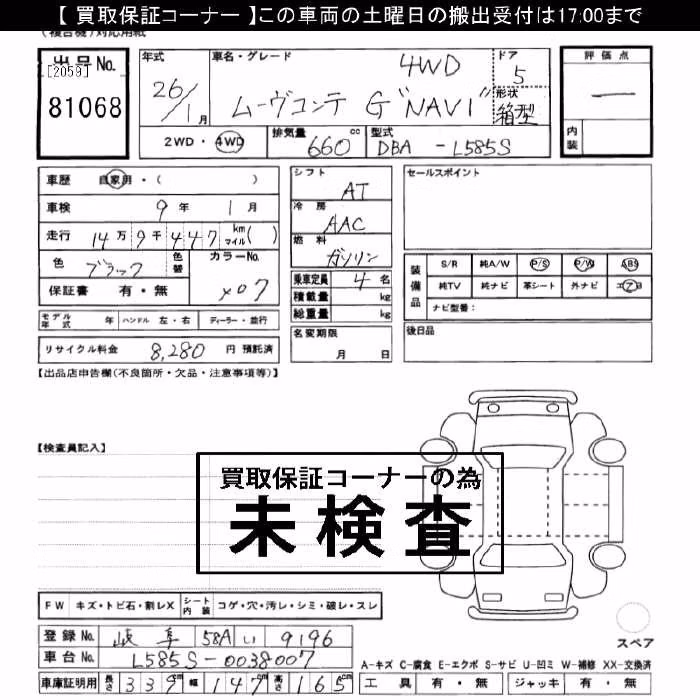 【 買取保証コーナー 】この車両の土曜日の搬出受付は17:00まで
(複合機)対応用紙
出品No.
[2059]
81068
年式 26/1月
車名・グレード 4WD
ムーヴコンテ G "NAVI"
ドア 5
形状 箱型
評価点 —
内装
2WD・4WD 排気量 660 cc 型式 DBA - L585S
車歴 自家用・( )
車検 9年 1月
走行 14万9千447 km マイル( )
色 ブラック 色替 カラーNo. X07
保証書 有・無
モデル年式 年 ハンドル 左・右 ディーラー・並行
リサイクル料金 8,280 円 預託済
シフト AT
冷房 AAC
燃料 ガソリン
乗車定員 4名
積載量 kg
総重量 kg
名変期限
月 日
セールスポイント
装備品 S/R 純A/W P/S P/W ABS
純TV 純ナビ 革シート 外ナビ エアB
ナビ型番:
後日品
【出品店申告欄(不良箇所・欠品・注意事項等)】
【検査員記入】
買取保証コーナーの為
未検査
FW キズ・トビ石・割レX シート内装 コゲ・穴・汚レ・シミ・破レ・スレ
登録No. 岐阜 58A い 9196
車台No. L585S-0038007
車庫証明用 長さ 339cm 幅 147cm 高さ 165cm
スペア
A-キズ C-腐食 E-エクボ S-サビ U-凹ミ W-補修 XX-交換済
工具 有・無 ジャッキ 有・無